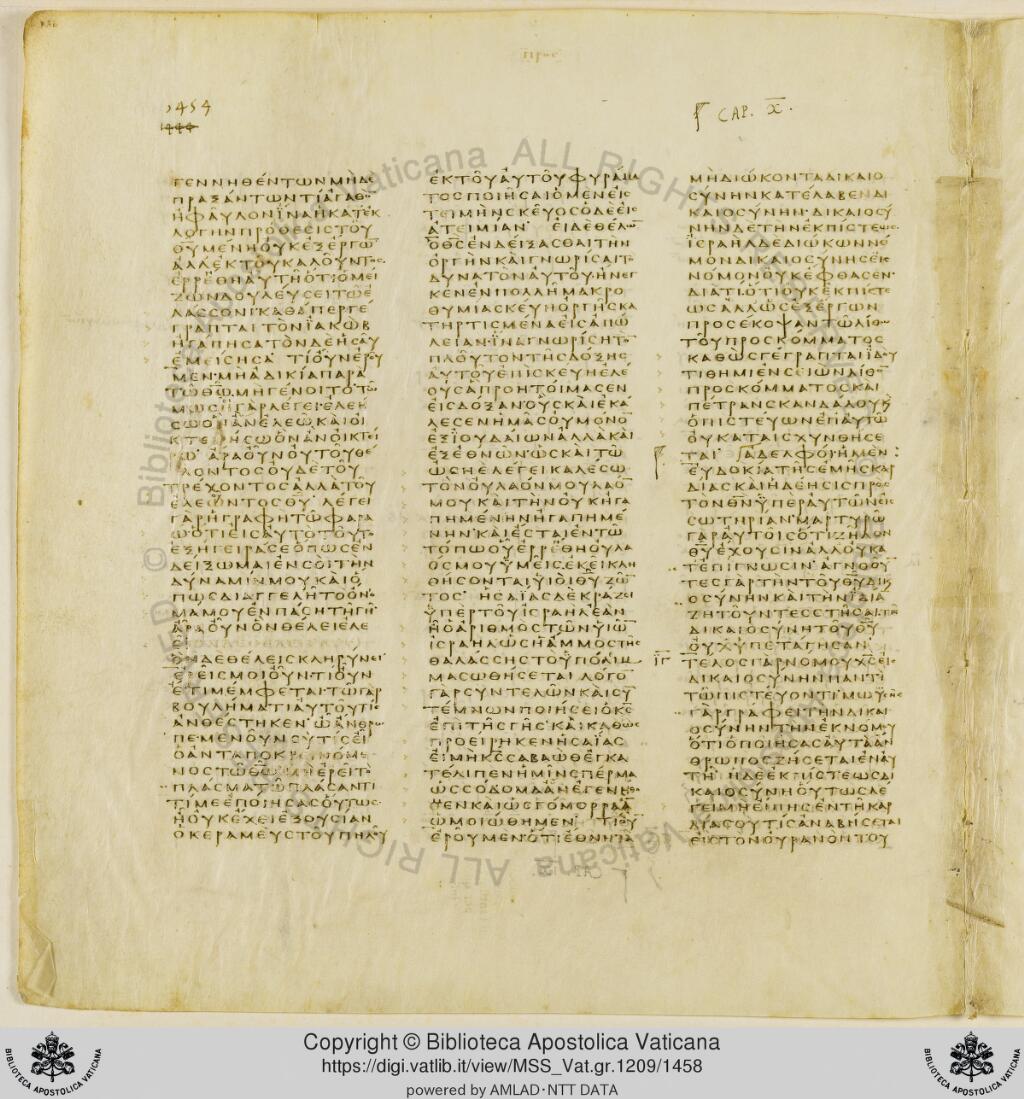 1454
CAP. X.
ΓΕΝΝΗΘΕΝΤΩΝΜΗΔΕ
ΠΡΑΞΑΝΤΩΝΤΙΑΓΑΘΟ̅
ΗΦΑΥΛΟΝΙΝΑΗΚΑΤΕΚ
ΛΟΓΗΝΠΡΟΘΕϹΙϹΤΟΥ
ΘΥΜΕΝΗΟΥΚΕΞΕΡΓΩ̅
ΑΛΛΕΚΤΟΥΚΑΛΟΥΝΤΟϹ
ΕΡΡΕΘΗΑΥΤΗΟΤΙΟΜΕΙ
ΖΩΝΔΟΥΛΕΥϹΕΙΤΩΕ
ΛΑϹϹΟΝΙΚΑΘΑΠΕΡΓΕ
ΓΡΑΠΤΑΙΤΟΝΙΑΚΩΒ
ΗΓΑΠΗϹΑΤΟΝΔΕΗϹΑΥ
ΕΜΕΙϹΗϹΑ ΤΙΟΥΝΕΡΟΥ
ΜΕΝ·ΜΗΑΔΙΚΙΑΠΑΡΑ
ΤΩΘΩ̅ΜΗΓΕΝΟΙΤΟΤΩ̅
ΜΩϹΗΓΑΡΛΕΓΕΙΕΛΕΗ
ϹΩΟΝΑΝΕΛΕΩΚΑΙΟΙ
ΚΤΕΙΡΗϹΩΟΝΑΝΟΙΚΤΕΙ
ΡΩ ΑΡΑΟΥΝΟΥΤΟΥΘΕ
ΛΟΝΤΟϹΟΥΔΕΤΟΥ
ΤΡΕΧΟΝΤΟϹΑΛΛΑΤΟΥ
ΕΛΕΩΝΤΟϹΘΥ̅ ΛΕΓΕΙ
ΓΑΡΗΓΡΑΦΗΤΩΦΑΡΑ
ΩΟΤΙΕΙϹΑΥΤΟΤΟΥΤΟ
ΕΞΗΓΕΙΡΑϹΕΟΠΩϹΕΝ
ΔΕΙΞΩΜΑΙΕΝϹΟΙΤΗΝ
ΔΥΝΑΜΙΝΜΟΥΚΑΙΟ
ΠΩϹΔΙΑΓΓΕΛΗΤΟΟΝΟ
ΜΑΜΟΥΕΝΠΑϹΗΤΗΓΗ
ΑΡΑΟΥΝΟΝΘΕΛΕΙΕΛΕ
ΕΙ
ΟΝΔΕΘΕΛΕΙϹΚΛΗΡΥΝΕΙ
ΕΡΕΙϹΜΟΙΟΥΝΤΙΟΥΝ
ΕΤΙΜΕΜΦΕΤΑΙΤΩΓΑΡ
ΒΟΥΛΗΜΑΤΙΑΥΤΟΥΤΙϹ
ΑΝΘΕϹΤΗΚΕΝ ΩΑΝΘΡΩ
ΠΕΜΕΝΟΥΝϹΥΤΙϹΕΙ
ΟΑΝΤΑΠΟΚΡΕΙΝΟΜΕ
ΝΟϹΤΩΘΩ̅ΜΗΕΡΕΙΤΟ
ΠΛΑϹΜΑΤΩΠΛΑϹΑΝΤΙ
ΤΙΜΕΕΠΟΙΗϹΑϹΟΥΤΩϹ
ΗΟΥΚΕΧΕΙΕΞΟΥϹΙΑΝ
ΟΚΕΡΑΜΕΥϹΤΟΥΠΗΛΟΥ
ΕΚΤΟΥΑΥΤΟΥΦΥΡΑΜΑ
ΤΟϹΠΟΙΗϹΑΙΟΜΕΝΕΙϹ
ΤΕΙΜΗΝϹΚΕΥΟϹΟΔΕΕΙϹ
ΑΤΕΙΜΙΑΝ ΕΙΔΕΘΕΛΩ̅
ΟΘϹ̅ΕΝΔΕΙΞΑϹΘΑΙΤΗΝ
ΟΡΓΗΝΚΑΙΓΝΩΡΙϹΑΙΤΟ
ΔΥΝΑΤΟΝΑΥΤΟΥΗΝΕΓ
ΚΕΝΕΝΠΟΛΛΗΜΑΚΡΟ
ΘΥΜΙΑϹΚΕΥΗΟΡΓΗϹΚΑ
ΤΗΡΤΙϹΜΕΝΑΕΙϹΑΠΩ
ΛΕΙΑΝ·ΙΝΑΓΝΩΡΙϹΗΤΟ̅
ΠΛΟΥΤΟΝΤΗϹΔΟΞΗϹ
ΑΥΤΟΥΕΠΙϹΚΕΥΗΕΛΕ
ΟΥϹΑΠΡΟΗΤΟΙΜΑϹΕΝ
ΕΙϹΔΟΞΑΝΟΥϹΚΑΙΕΚΑ
ΛΕϹΕΝΗΜΑϹΟΥΜΟΝΟ̅
ΕΞΙΟΥΔΑΙΩΝΑΛΛΑΚΑΙ
ΕΞΕΘΝΩΝ·ΩϹΚΑΙΤΩ
ΩϹΗΕΛΕΓΕΙΚΑΛΕϹΩ
ΤΟΝΟΥΛΑΟΝΜΟΥΛΑΟ̅
ΜΟΥΚΑΙΤΗΝΟΥΚΗΓΑ
ΠΗΜΕΝΗΝΗΓΑΠΗΜΕ
ΝΗΝΚΑΙΕϹΤΑΙΕΝΤΩ
ΤΟΠΩΟΥΕΡΡΕΘΗΟΥΛΑ
ΟϹΜΟΥΥΜΕΙϹΕΚΕΙΚΛΗ
ΘΗϹΟΝΤΑΙΥΙΟΙΘΥ̅ΖΩ̅
ΤΟϹ ΗϹΑΙΑϹΔΕΚΡΑΖΕΙ
ΥΠΕΡΤΟΥΙϹΡΑΗΛΕΑΝ
ΗΟΑΡΙΘΜΟϹΤΩΝΥΙΩ̅
ΙϹΡΑΗΛΩϹΗΑΜΜΟϹΤΗϹ
ΘΑΛΑϹϹΗϹΤΟΥΠΟΛΙΜ
ΜΑϹΩΘΗϹΕΤΑΙΛΟΓΟ̅
ΓΑΡϹΥΝΤΕΛΩΝΚΑΙϹΥ̅
ΤΕΜΝΩΝΠΟΙΗϹΕΙΟΚϹ̅
ΕΠΙΤΗϹΓΗϹΚΑΙΚΑΘΩϹ
ΠΡΟΕΙΡΗΚΕΝΗϹΑΙΑϹ
ΕΙΜΗΚϹ̅ϹΑΒΑΩΘΕΓΚΑ
ΤΕΛΙΠΕΝΗΜΙΝϹΠΕΡΜΑ
ΩϹϹΟΔΟΜΑΑΝΕΓΕΝΗΘΗ
ΜΕΝΚΑΙΩϹΓΟΜΟΡΡΑΑ̅
ΩΜΟΙΩΘΗΜΕΝ ΤΙΟΥ̅
ΕΡΟΥΜΕΝΟΤΙΕΘΝΗΤΑ
ΜΗΔΙΩΚΟΝΤΑΔΙΚΑΙΟ
ϹΥΝΗΝΚΑΤΕΛΑΒΕΝΔΙ
ΚΑΙΟϹΥΝΗΝ·ΔΙΚΑΙΟϹΥ
ΝΗΝΔΕΤΗΝΕΚΠΙϹΤΕΩϹ
ΙϹΡΑΗΛΔΕΔΙΩΚΩΝΝΟ
ΜΟΝΔΙΚΑΙΟϹΥΝΗϹΕΙϹ
ΝΟΜΟΝΟΥΚΕΦΘΑϹΕΝ·
ΔΙΑΤΙΟΤΙΟΥΚΕΚΠΙϹΤΕ
ΩϹΑΛΛΩϹΕΞΕΡΓΩΝ
ΠΡΟϹΕΚΟΨΑΝΤΩΛΙΘΩ
ΤΟΥΠΡΟϹΚΟΜΜΑΤΟϹ
ΚΑΘΩϹΓΕΓΡΑΠΤΑΙΙΔΟΥ
ΤΙΘΗΜΙΕΝϹΕΙΩΝΛΙΘΟ̅
ΠΡΟϹΚΟΜΜΑΤΟϹΚΑΙ
ΠΕΤΡΑΝϹΚΑΝΔΑΛΟΥΚ
ΟΠΙϹΤΕΥΩΝΕΠΑΥΤΩ
ΟΥΚΑΤΑΙϹΧΥΝΘΗϹΕ
ΤΑΙ ΑΔΕΛΦΟΙΗΜΕΝ
ΕΥΔΟΚΙΑΤΗϹΕΜΗϹΚΑΡ
ΔΙΑϹΚΑΙΗΔΕΗϹΙϹΠΡΟϹ
ΤΟΝΘΝ̅ΥΠΕΡΑΥΤΩΝΕΙϹ
ϹΩΤΗΡΙΑΝ·ΜΑΡΤΥΡΩ
ΓΑΡΑΥΤΟΙϹΟΤΙΖΗΛΟΝ
ΘΥ̅ΕΧΟΥϹΙΝΑΛΛΟΥΚΑ
ΤΕΠΙΓΝΩϹΙΝ ΑΓΝΟΟΥ̅
ΤΕϹΓΑΡΤΗΝΤΟΥΘΥ̅ΔΙΚΑΙ
ΟϹΥΝΗΝΚΑΙΤΗΝΙΔΙΑ̅
ΖΗΤΟΥΝΤΕϹϹΤΗϹΑΙΤΗ
ΔΙΚΑΙΟϹΥΝΗΤΟΥΘΥ̅
ΟΥΧΥΠΕΤΑΓΗϹΑΝ
ΙΓ̅ ΤΕΛΟϹΓΑΡΝΟΜΟΥΧϹ̅ΕΙϹ
ΔΙΚΑΙΟϹΥΝΗΝΠΑΝΤΙ
ΤΩΠΙϹΤΕΥΟΝΤΙΜΩΥϹΗϹ
ΓΑΡΓΡΑΦΕΙΤΗΝΔΙΚΑΙ
ΟϹΥΝΗΝΤΗΝΕΚΝΟΜΟΥ
ΟΤΙΟΠΟΙΗϹΑϹΑΥΤΑΑΝ
ΘΡΩΠΟϹΖΗϹΕΤΑΙΕΝΑΥ
ΤΗ ΗΔΕΕΚΠΙϹΤΕΩϹΔΙ
ΚΑΙΟϹΥΝΗΟΥΤΩϹΛΕ
ΓΕΙΜΗΕΙΠΗϹΕΝΤΗΚΑΡ
ΔΙΑϹΟΥΤΙϹΑΝΑΒΗϹΕΤΑΙ
ΕΙϹΤΟΝΟΥΡΑΝΟΝΤΟΥ
© Biblioteca Apostolica Vaticana ALL RIGHTS RESERVED
BIBLIOTECA APOSTOLICA VATICANA
Copyright © Biblioteca Apostolica Vaticana
https://digi.vatlib.it/view/MSS_Vat.gr.1209/1458
powered by AMLAD·NTT DATA
BIBLIOTECA APOSTOLICA VATICANA